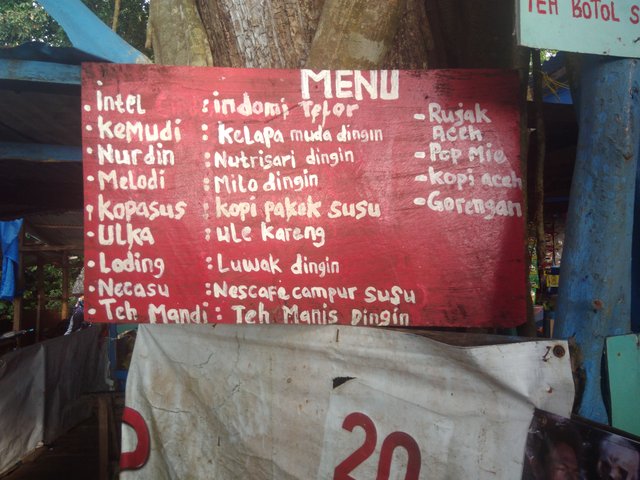 TEH BOTOL S
MENU
• intel : indomi Telor
• KeMudi : Kelapa muda dingin
• Nurdin : Nutrisari dingin
• Melodi : Milo dingin
• Kopasus : kopi pakek susu
• ULKA : ule kareng
• Loding : Luwak dingin
• Necasu : Nescafe campur susu
• Teh Mandi : Teh Manis Dingin
- Rujak
Aceh
- Pop Mie
- Kopi aceh
- Gorengan
20